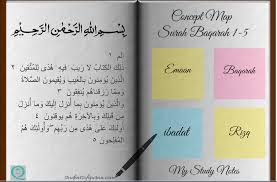 بِسْمِ اللَّهِ الرَّحْمَٰنِ الرَّحِيمِ
الم ١
ذلك الكتاب لا ريب فيه هدى للمتقين ٢
الذين يؤمنون بالغيب ويقيمون الصلاة
ومما رزقناهم ينفقون ٣
والذين يؤمنون بما أنزل إليك وما أنزل
من قبلك وبالآخرة هم يوقنون ٤
أولئك على هدى من ربهم وأولئك هم
المفلحون ٥
Concept Map
Surah Baqarah 1-5
Emaan
Baqarah
ibadat
Rizq
My Study Notes